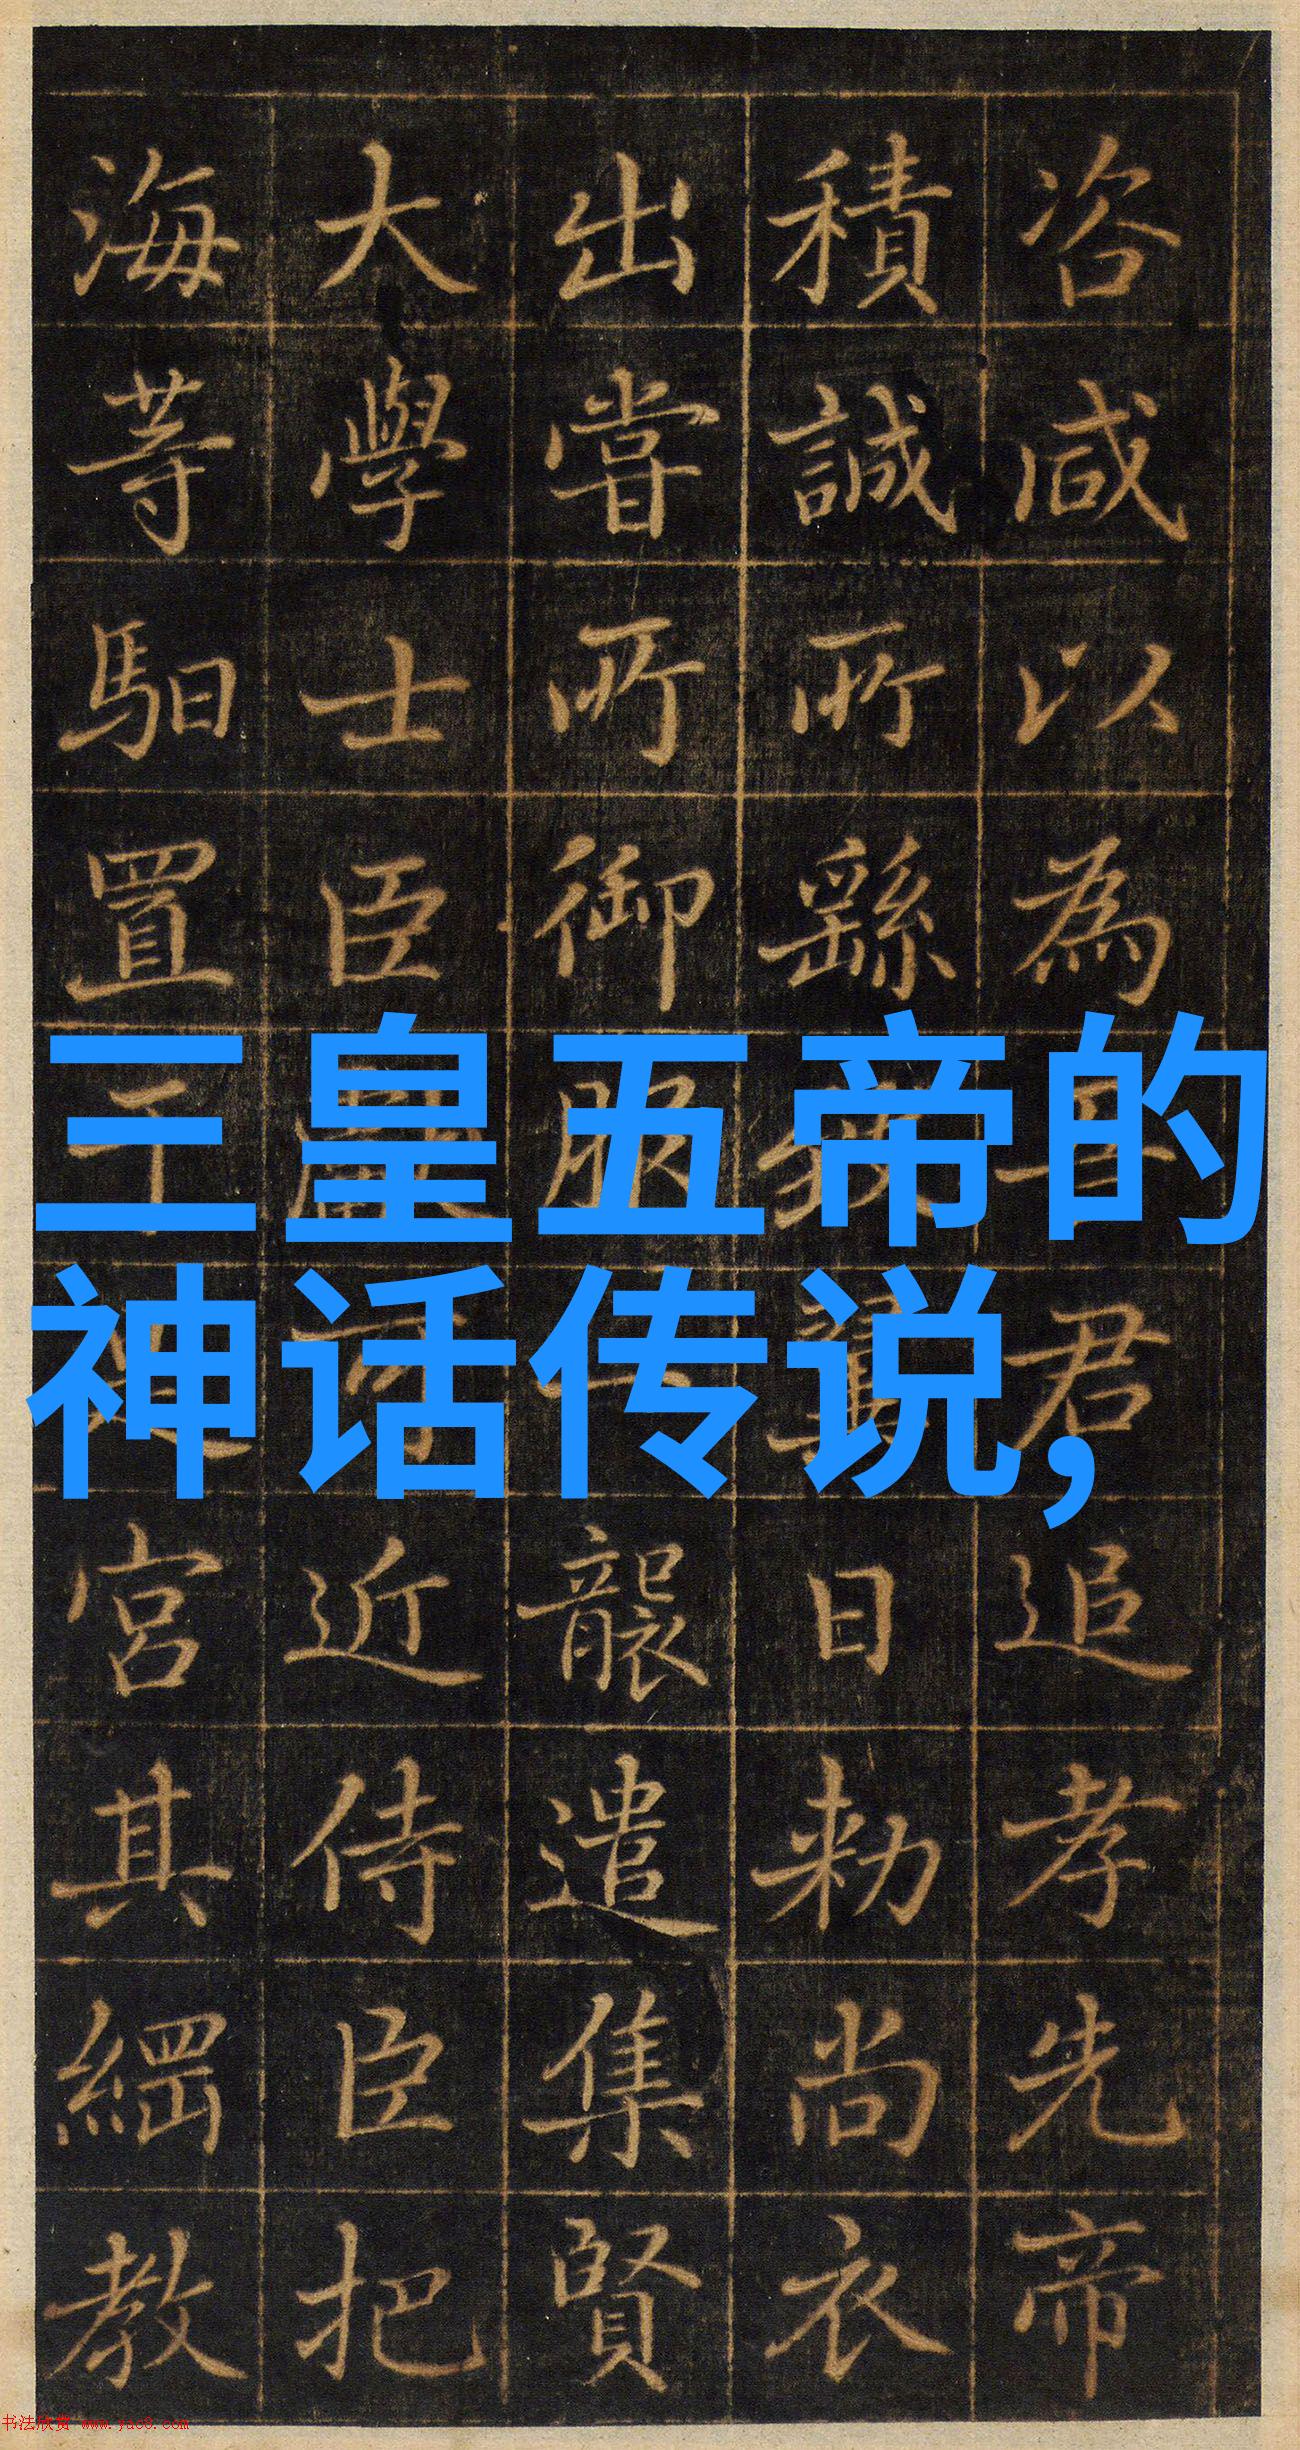 咨咸以為君追孝先帝
積誠所繇日勅尚衣
出甞所御服一襲遣集賢
大學士臣近侍臣把
海等馹置于宮其綱教
三皇五帝的
神话传说,
书法欣赏 www.yac8.com